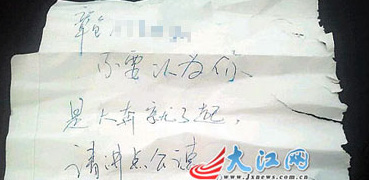 不要以为你
是大奔就了起，
请讲点公德
大江网
www.jxnews.com.cn